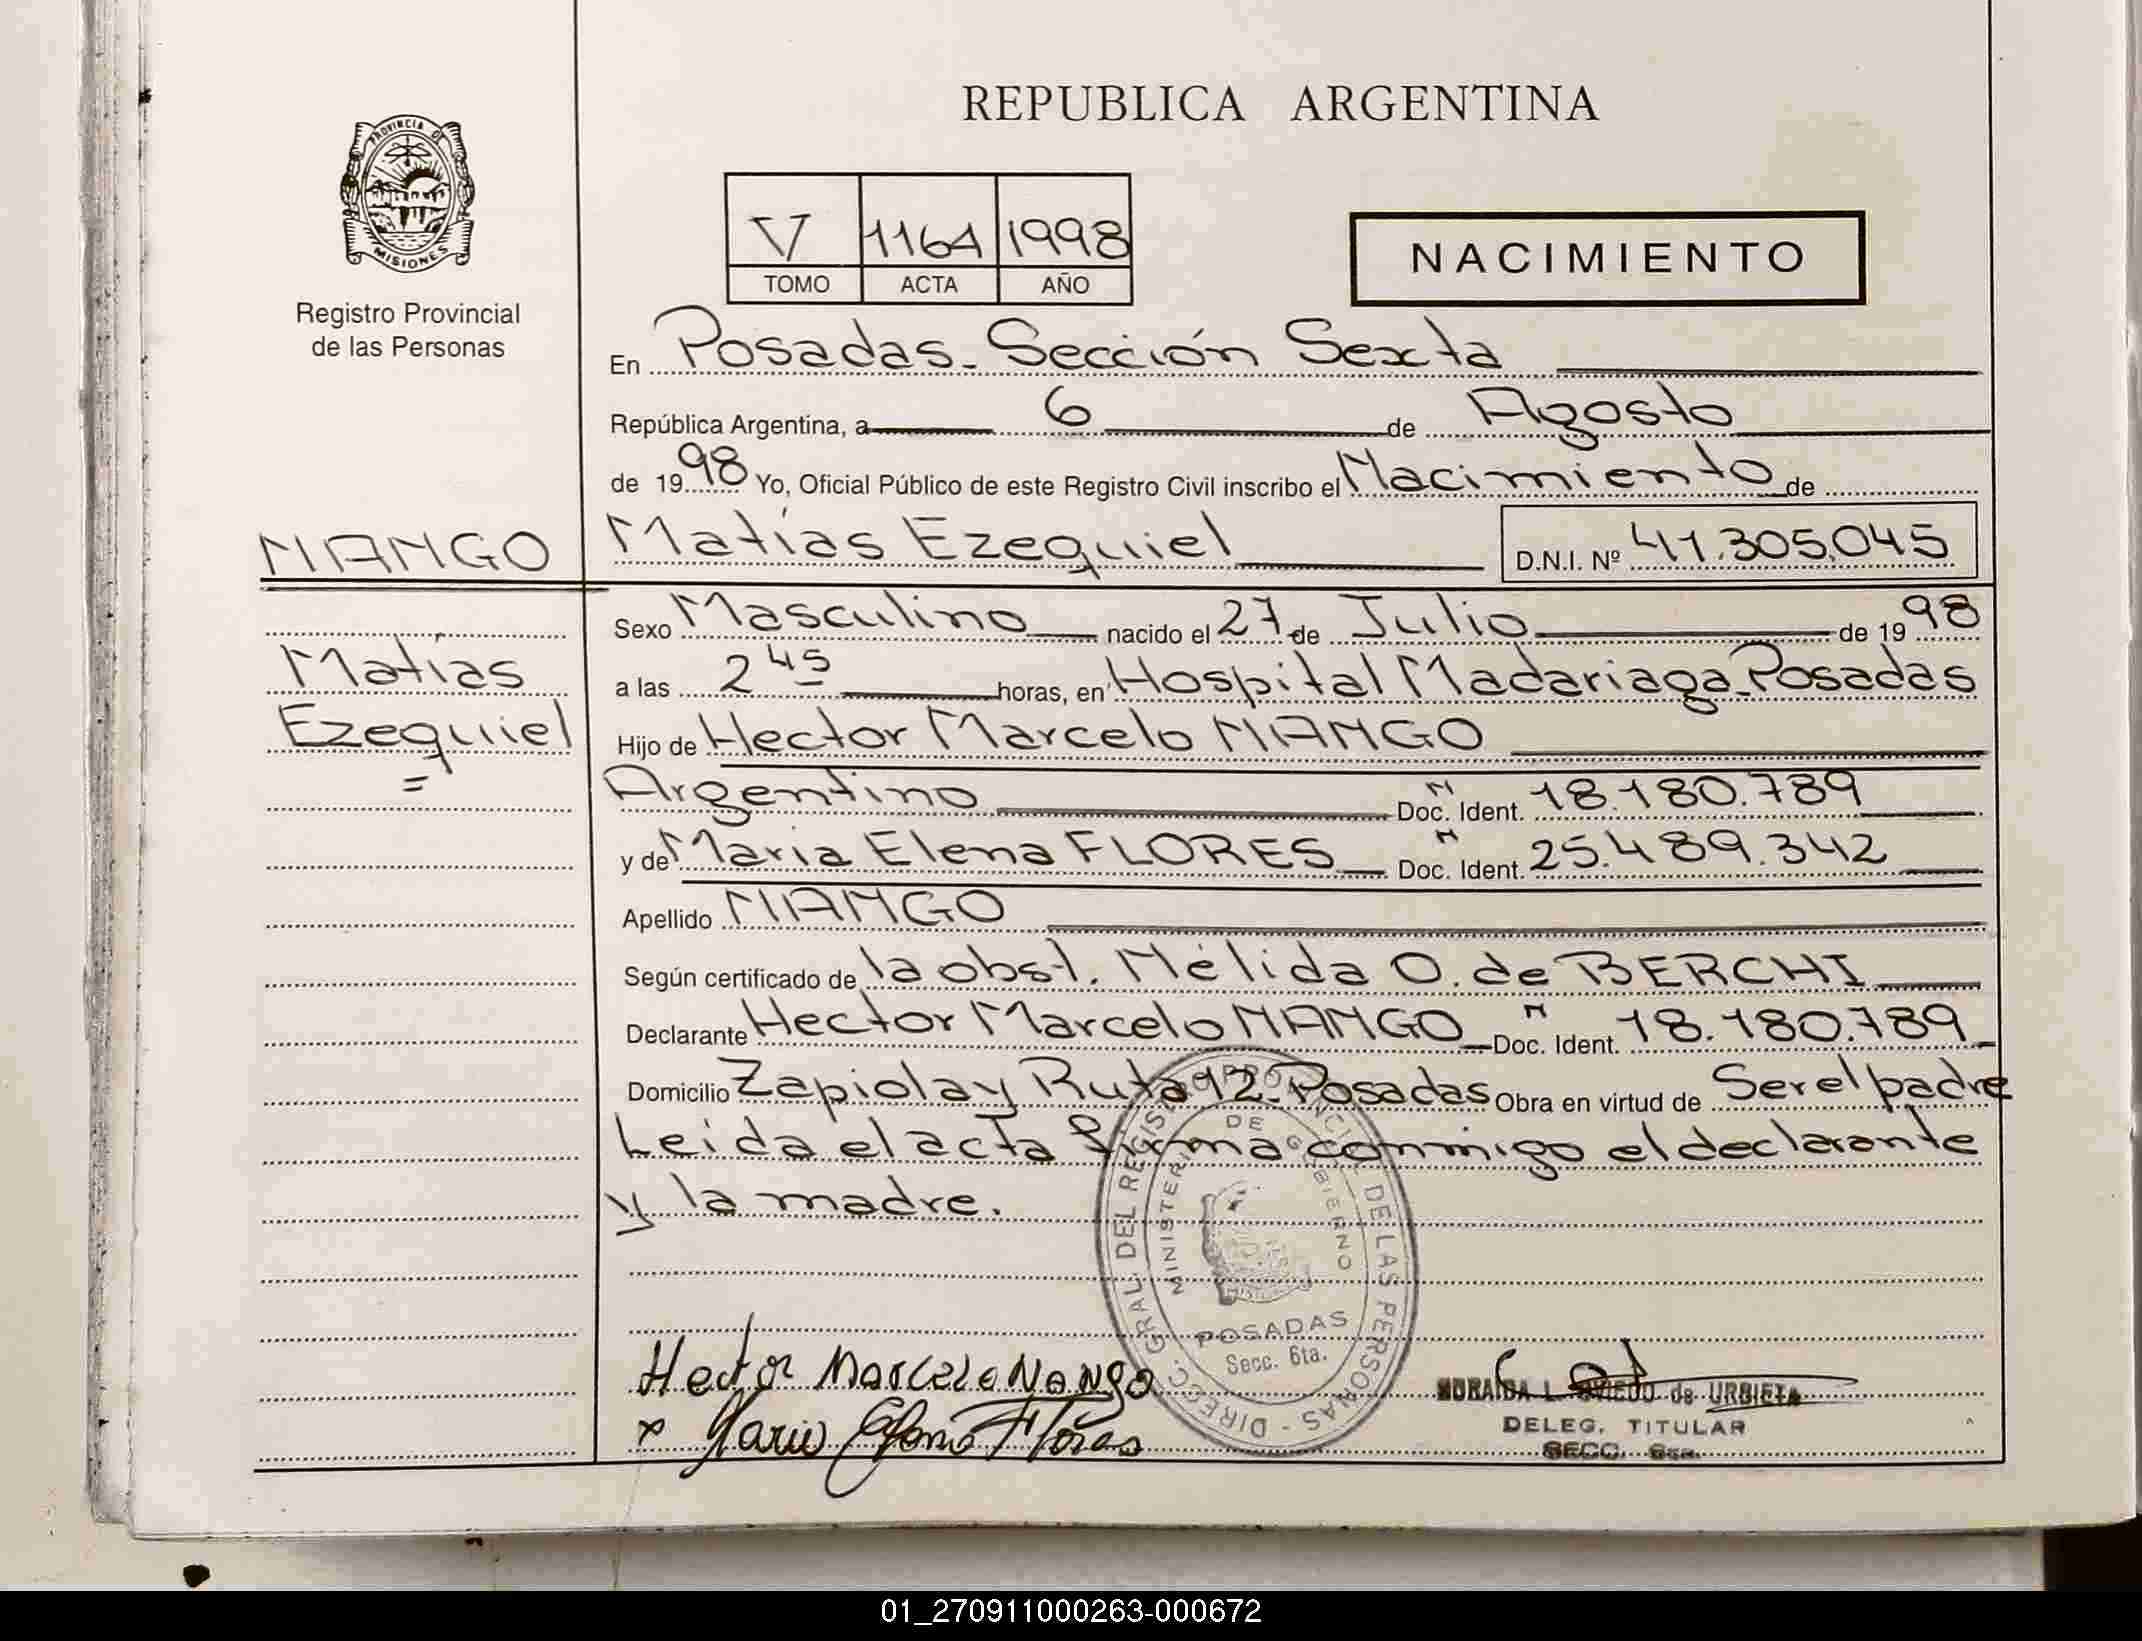 REPUBLICA ARGENTINA
PROVINCIA DE
MISIONES
Registro Provincial
de las Personas
V 1164 1998
TOMO ACTA AÑO
NACIMIENTO
En Posadas - Sección Sexta
República Argentina, a 6 de Agosto
de 1998 Yo, Oficial Público de este Registro Civil inscribo el Nacimiento de
NANGO Matías Ezequiel D.N.I. Nº 41.305.045
Sexo Masculino nacido el 27 de Julio de 1998
Matías
a las 2 45 horas, en Hospital Madariaga - Posadas
Ezequiel
Hijo de Hector Marcelo NANGO
Argentino Doc. N Ident. 18.180.789
y de Maria Elena FLORES Doc. N Ident. 25.489.342
Apellido NANGO
Según certificado de la obst. Nélida O. de BERCHI
Declarante Hector Marcelo NANGO Doc. N Ident. 18.180.789
Domicilio Zapiola y Ruta 12 - Posadas Obra en virtud de Ser el padre
Leida el acta firma conmigo el declarante
y la madre.
DIRECC. GRAL. DEL REGISTRO PROVINCIAL DE LAS PERSONAS
MINISTERIO DE GOBIERNO
MISIONES
POSADAS
Secc. 6ta.
Hector Marcelo Nango
x Maria Elena Flores
NORAIDA L. OVIEDO de URBIETA
DELEG. TITULAR
SECC. 6ta.
01_270911000263-000672